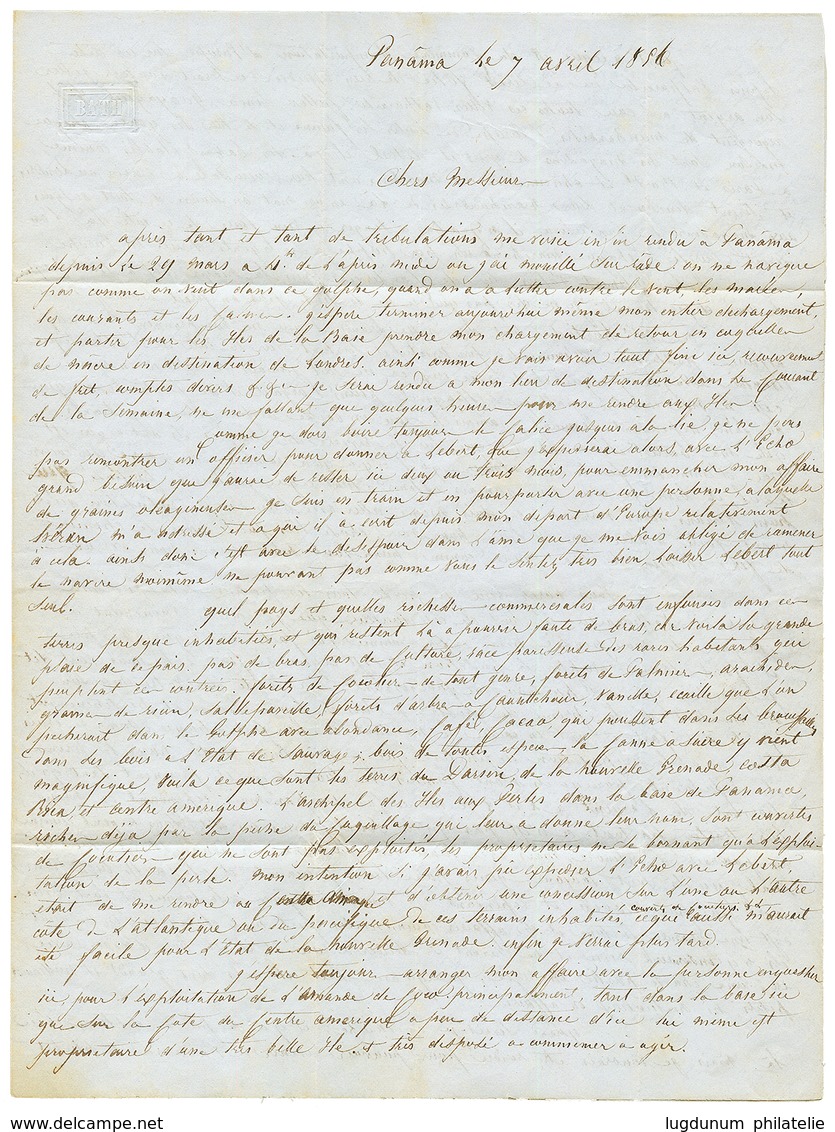 Panama le 7 avril 1856
BATH
Chers Messieurs
après tant et tant de tribulations me voici enfin rendu à Panama
depuis le 29 mars a 4hr de l'après midi ou j'ai mouillé sur rade. on ne navigue
pas comme on veut dans ce golphe, quand on a a lutter contre le vent, les marées,
les courants et les . j'espere terminer aujourd'hui même mon entier dechargement,
et partir pour les Iles de la Baie prendre mon chargement de retour en coquilles
de nacre en destination de Londres. ainsi comme je vais avoir tout fini ici, recouvrement
de fret, comptes divers &.&. je serai rendu a mon lieu de destination dans le courant
de la semaine, ne me fallant que quelques heures pour me rendre aux Iles.
Comme je dois boire toujours le calice jusques a la lie, je ne peux
pas rencontrer un officier pour donner a Lebert, que j'expedierai alors, avec l'Echo
grand besoin que j'aurai de rester ici deux ou trois mois, pour emmancher mon affaire
de graines oleagineuses je suis en train et en pourparler avec une personne, a laquelle
m'a adressé et a qui il a écrit depuis mon départ d'Europe relativement
à cela. ainsi donc c'est avec le desespoir dans l'ame que je me vois obligé de ramener
le navire moimême ne pouvant pas comme vous le sentez très bien laisser Lebert tout
seul. quel pays et quelles richesses commerciales sont enfouies dans ces
terres presque inhabitées, et qui restent là a pourrir faute de bras, car voila la grande
plaie de ce pais. pas de bras, pas de culture, race paresseuse des rares habitants qui
peuplent ces contrées. forêts de Cocotiers de tout genre, forêts de Palmiers, arachides,
graines de ricin, salsepareille, forêts d'arbres a Caoutchouc, Vanille, écaille que l'on
pecherait dans le Golphe avec abondance, Café, Cacao, qui poussent dans les broussailles
dans les bois à l'Etat de sauvage, bois de toutes especes, la Canne a sucre y vient
magnifique, voila ce que sont les terres du Darien, de la nouvelle Grenade, costa
Rica et centre amerique. L'archipel des Iles aux Perles dans la baie de Panama,
riches deja par la pêche du Coquillage qui leur a donné leur nom, sont couvertes
de Cocotiers qui ne sont pas exploités, les proprietaires ne se bornant qu'a l'exploi-
tation de la perle. mon intention si j'avais pu expedier l'Echo avec Lebert,
etait de me rendre au Centre Amerique et d'obtenir une concession sur l'une ou l'autre
couverts de Cocotiers &&
cote de l'atlantique ou du pacifique de ces terrains inhabités ce qui aussi m'aurait
été facile pour l'Etat de la nouvelle Grenade. enfin je verrai plus tard.
j'espere toujours arranger mon affaire avec la personne en question
ici, pour l'exploitation de l'amande de Coco principalement, tant dans la baie ici
que sur la Cote du Centre amerique a peu de distance d'ici lui même est
propriétaire d'une très belle Ile et très disposé a commencer a agir.
lugdunum philatelie